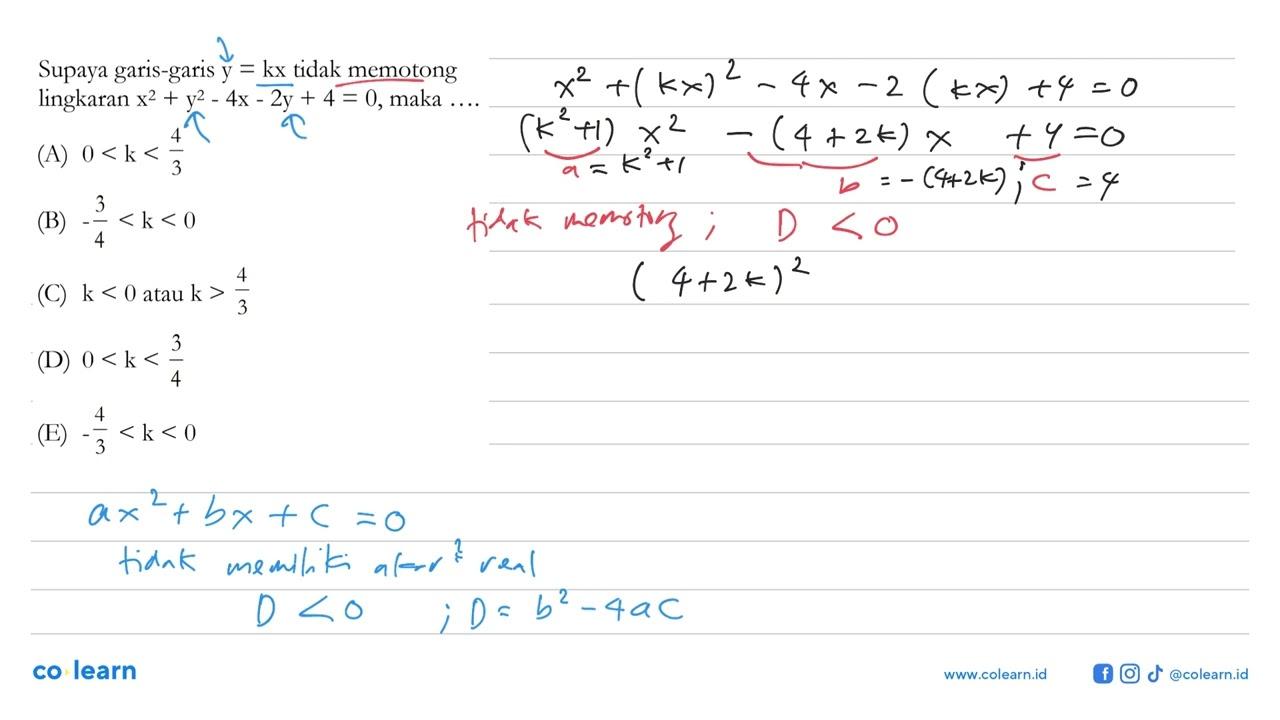 Supaya garis-garis y = kx tidak memotong
lingkaran x² + y² - 4x - 2y + 4 = 0, maka ....
(A) 0 < k < 4/3
(B) -3/4 < k < 0
(C) k < 0 atau k > 4/3
(D) 0 < k < 3/4
(E) -4/3 < k < 0
x² + (kx)² - 4x - 2(kx) + 4 = 0
(k²+1) x² - (4+2k) x + 4 = 0
a = k²+1 b = -(4+2k) ; c = 4
tidak memotong ; D < 0
(4+2k)²
ax² + bx + c = 0
tidak memiliki akar² real
D < 0 ; D = b² - 4ac
co learn
www.colearn.id
@colearn.id